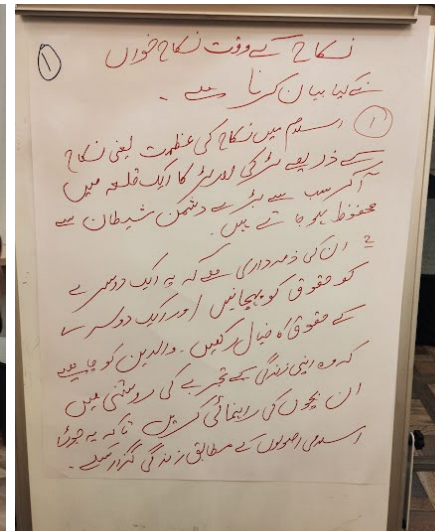 ۱
نکاح کے وقت نکاح خواں
نے کیا بیان کرنا ہے۔
۱ اسلام میں نکاح کی عظمت یعنی نکاح
کے ذریعے لڑکی اور لڑکا ایک قلعہ میں
آکر سب سے بڑے دشمن شیطان سے
محفوظ ہو جاتے ہیں۔
۲ ان کی ذمہ داری ہے کہ یہ ایک دوسرے
کو حقوق کو پہچانیں اور ایک دوسرے
کے حقوق کا خیال رکھیں۔ والدین کو چاہیے
کہ وہ اپنی زندگی کے تجربے کی روشنی میں
ان بچوں کی راہنمائی کریں تاکہ یہ جوڑا
اسلامی اصولوں کے مطابق زندگی گزار سکے۔